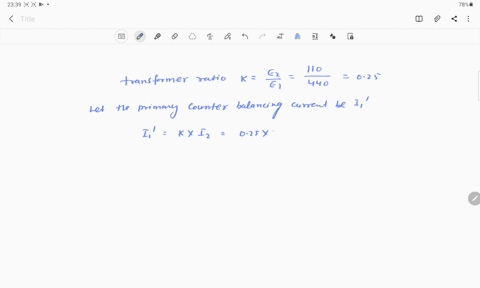 23:39
78%
Title
transformer ratio K = E2/E1 = 110/440 = 0.25
Let the primary counter balancing current be I1'
I1' = K x I2 = 0.25 x